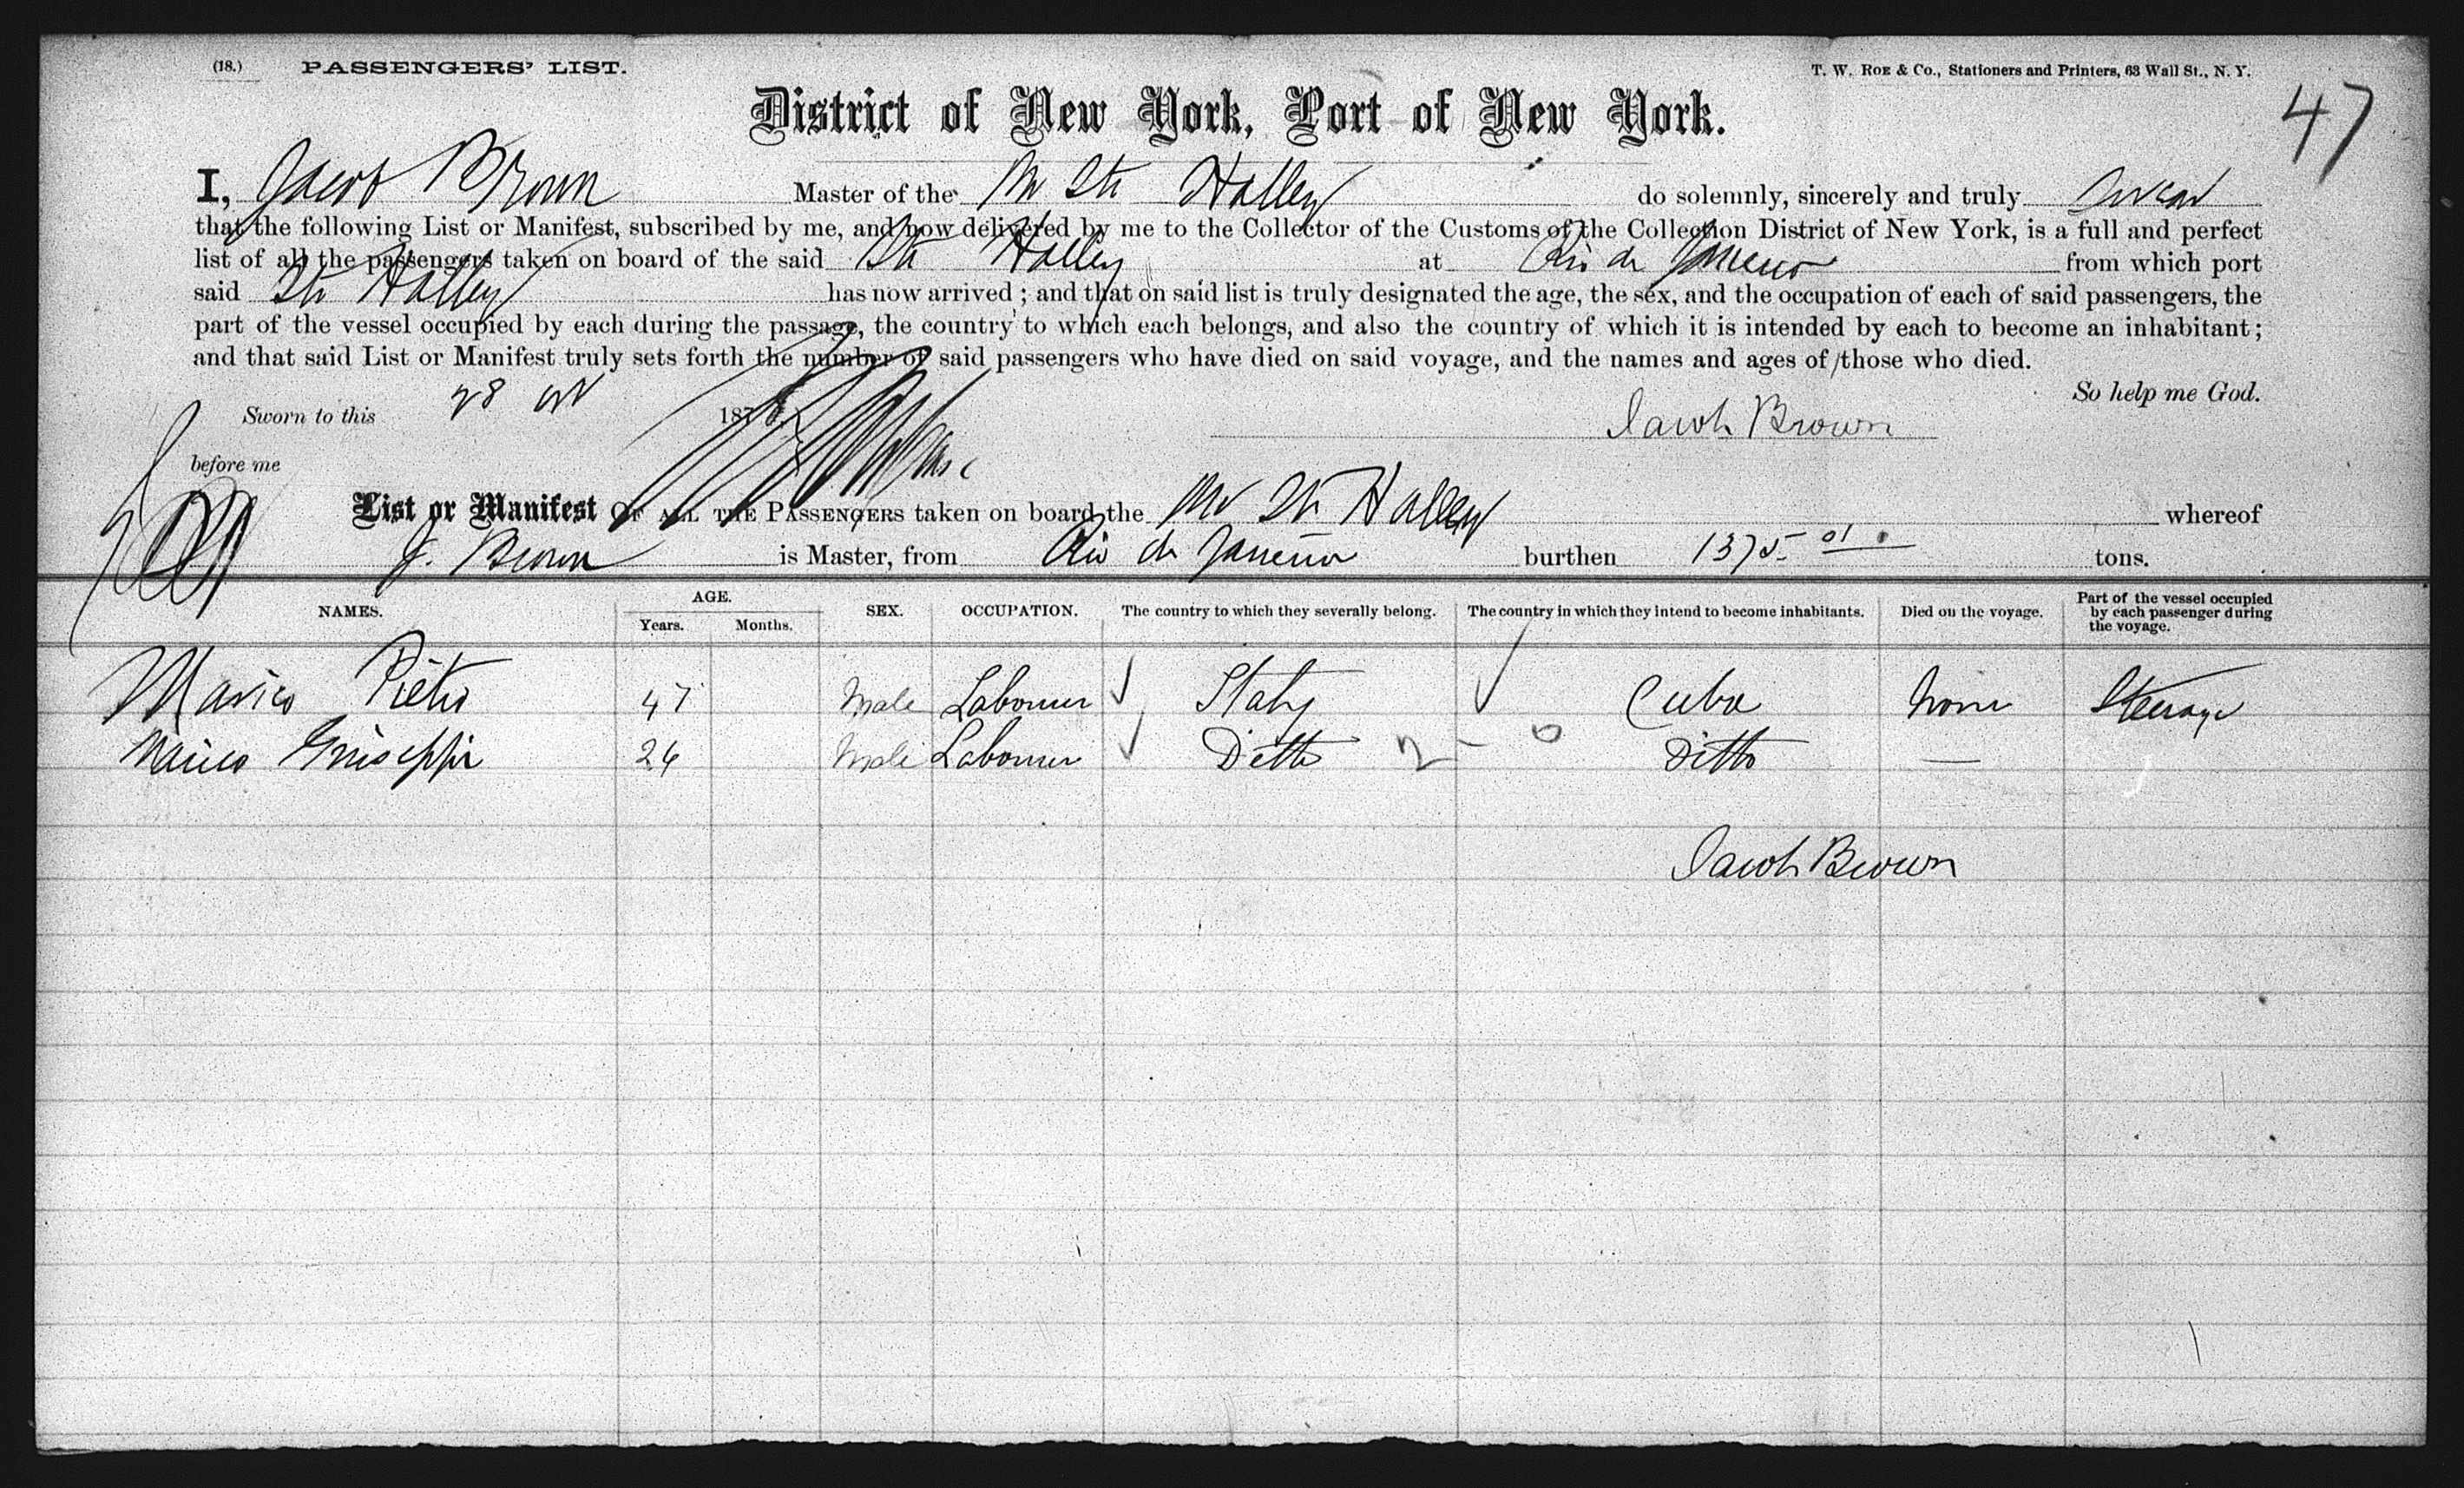 (18.) PASSENGERS' LIST. T. W. ROE & Co., Stationers and Printers, 63 Wall St., N. Y.
47
District of New York, Port of New York.
I, Jacob Brown Master of the Str Halley do solemnly, sincerely and truly swear
that the following List or Manifest, subscribed by me, and now delivered by me to the Collector of the Customs of the Collection District of New York, is a full and perfect
list of all the passengers taken on board of the said Str Halley at Rio de Janeiro from which port
said Str Halley has now arrived; and that on said list is truly designated the age, the sex, and the occupation of each of said passengers, the
part of the vessel occupied by each during the passage, the country to which each belongs, and also the country of which it is intended by each to become an inhabitant;
and that said List or Manifest truly sets forth the number of said passengers who have died on said voyage, and the names and ages of those who died.
So help me God.
Sworn to this 28 187 Jacob Brown
before me
List or Manifest OF ALL THE PASSENGERS taken on board the Str Halley whereof
J. Brown is Master, from Rio de Janeiro burthen 1375 01 tons.
NAMES. AGE. Years. Months. SEX. OCCUPATION. The country to which they severally belong. The country in which they intend to become inhabitants. Died on the voyage. Part of the vessel occupied by each passenger during the voyage.
Marico Pietro 47 Male Labourer Italy Cuba None Steerage
Marico Guiseppi 26 Male Labourer Ditto 2 - 0 Ditto —
Jacob Brown